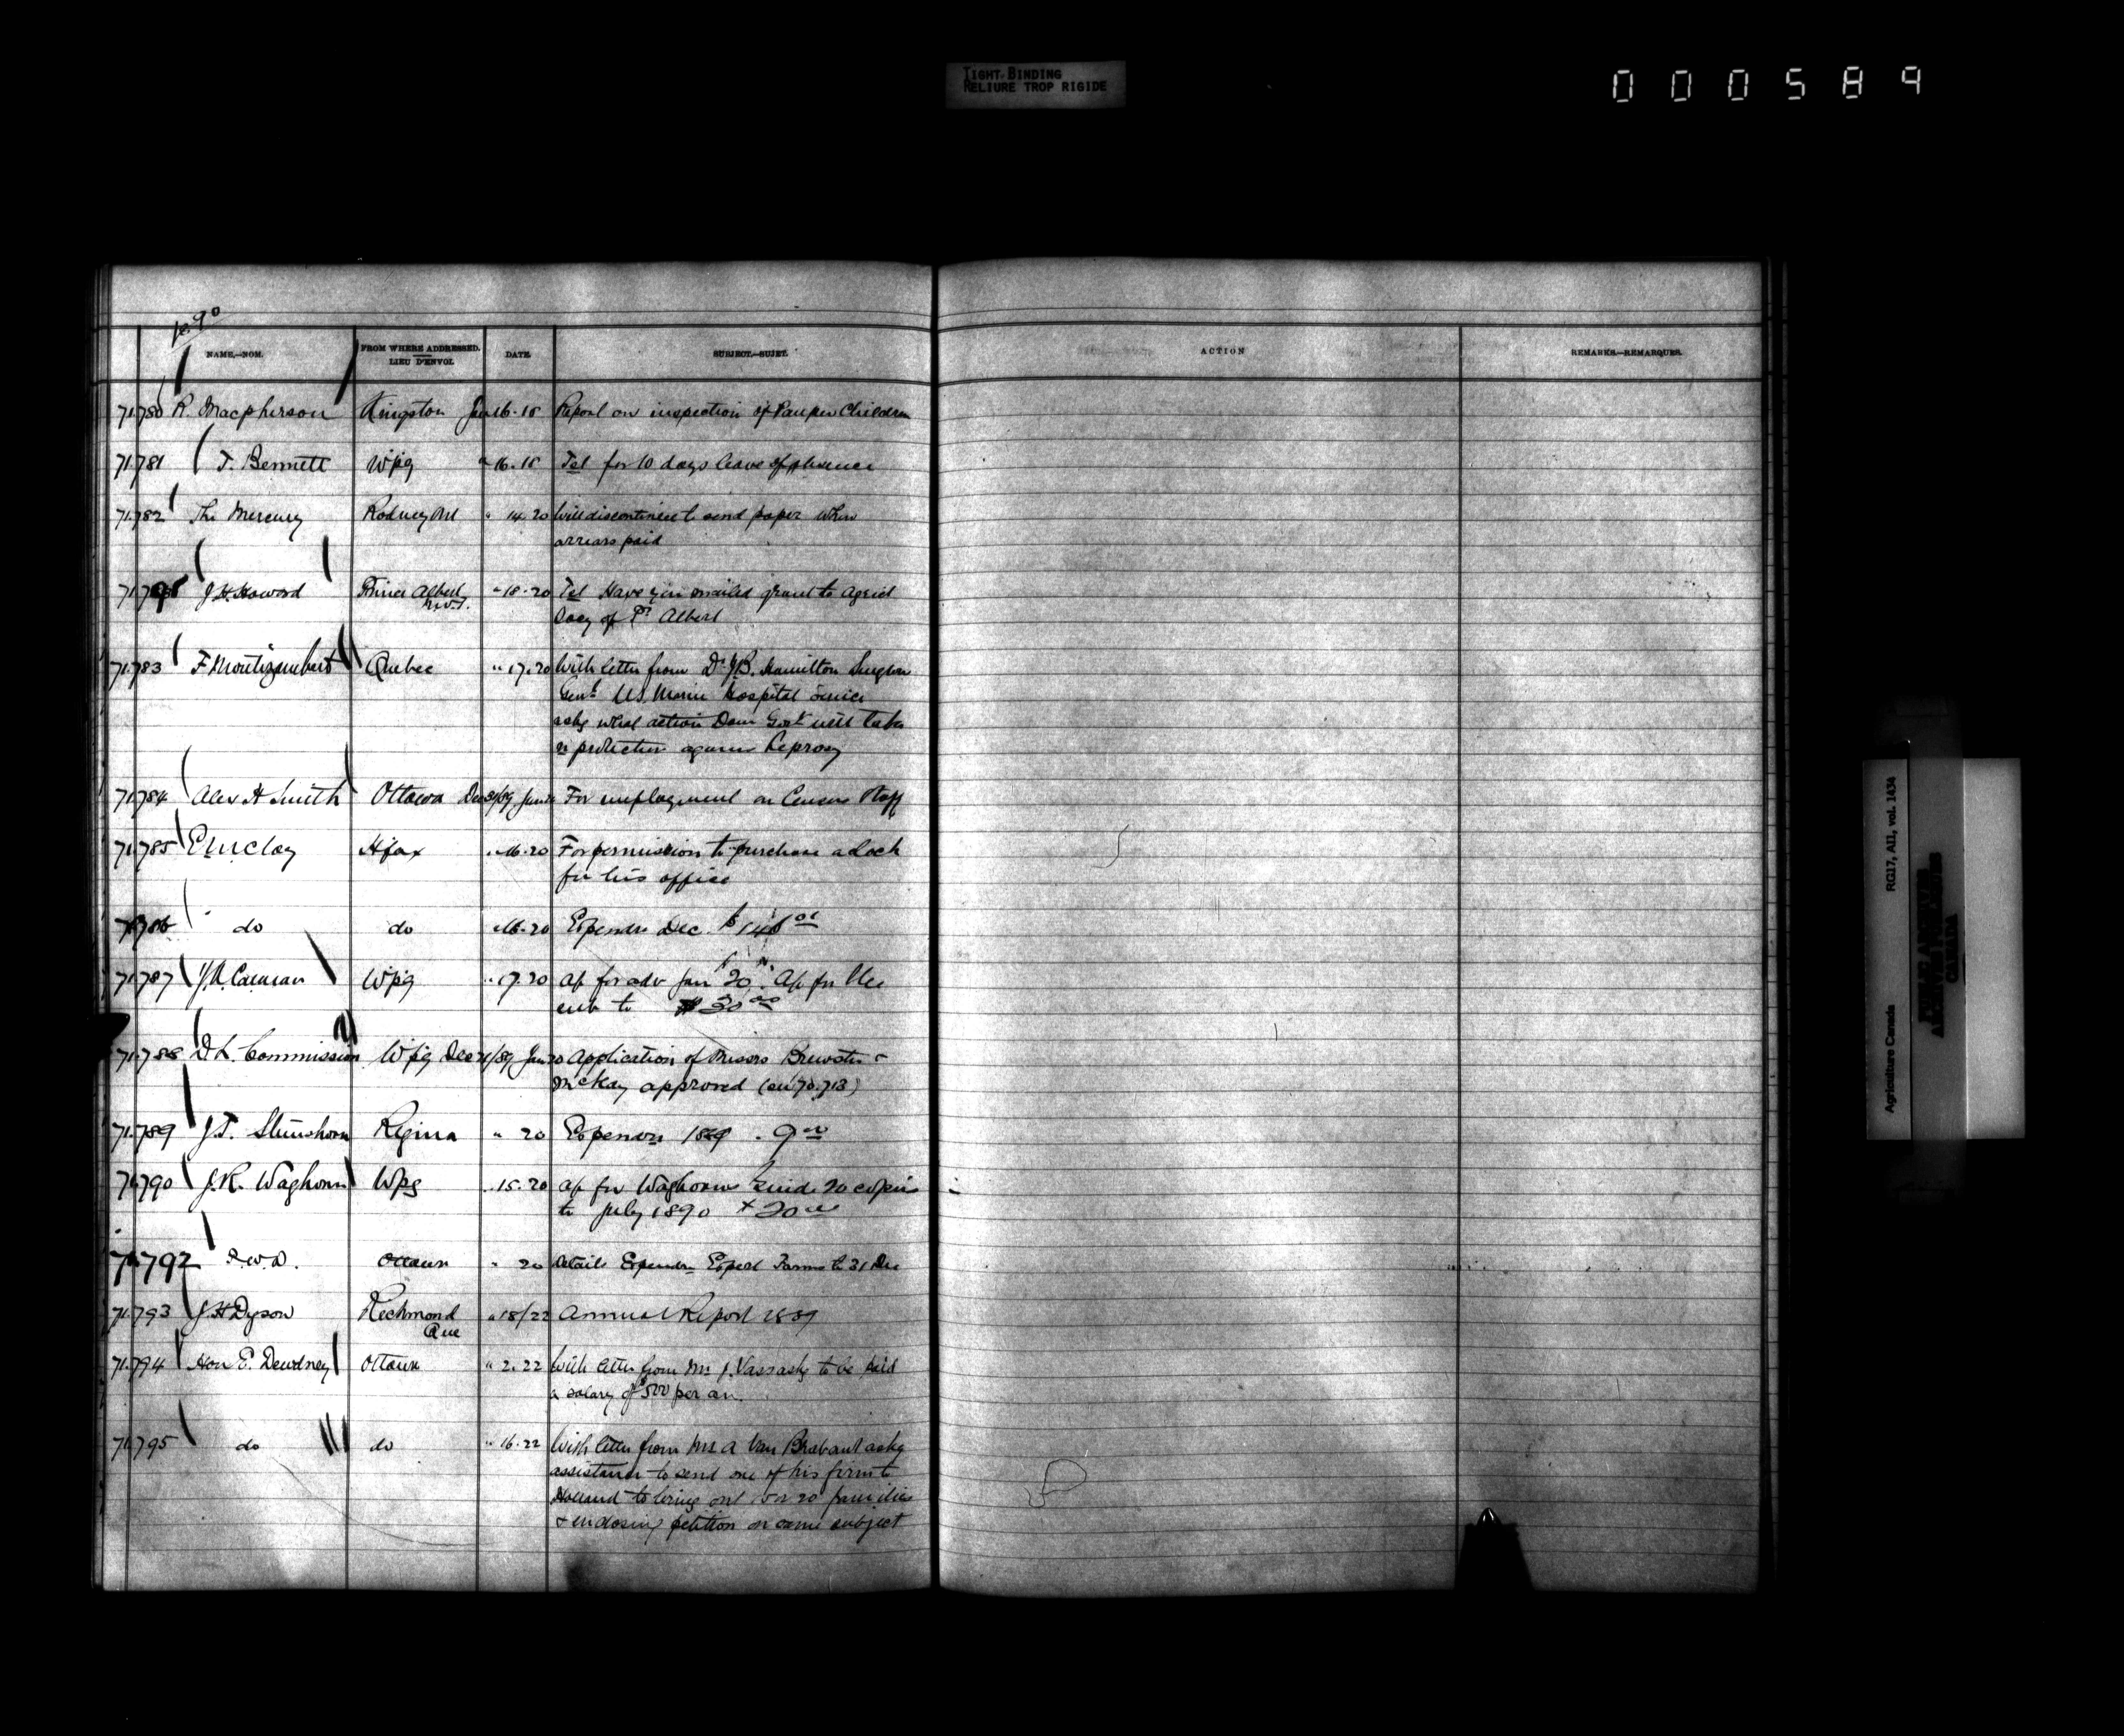 TIGHT BINDING
RELIURE TROP RIGIDE
000589
NAME.—NOM.
FROM WHERE ADDRESSED.
LIEU D'ENVOI.
DATE.
SUBJECT.—SUJET.
ACTION
REMARKS.—REMARQUES.
71.780 R. Macpherson Kingston Jan 16.18 Report on inspection of Pauper Children
71.781 T. Bennett Wpg " 16.18 Tel for 10 days leave of absence
71.782 The Mercury Rodney Ont " 14.20 Will discontinue to send paper when
arrears paid
J.H. Howard Prince Albert " 18.20 Tel Have you mailed grant to Agricl
N.W.T. Socy of Pr Albert
71.783 F. Montizambert Quebec " 17.20 With letter from Dr J.B. Hamilton Surgeon
Genl U.S. Marine Hospital Service
askg what action Dom Govt will take
re protection against Leprosy
71.784 Alex H Smith Ottawa Dec 31/89 Jan 20 For employment on Census Staff
71.785 E. McClay Hfax " 16.20 For permission to purchase a Lock
for his office
71.786 do do " 16.20 Expenses Dec. $
71.787 Wpg " 17.20 Ap for adv Jan 20. Ap for Dec
sub to $30 00
71.788 D.L. Commission Wpg Dec /89 Jan 20 Application of Messrs Brewster &
McKay approved (on 70.713)
71.789 J.T. Regina " 20 Expenses 1889 . 9 00
71.790 J.R. Waghorn Wpg " 15.20 ap for Waghorns Guide 20 copies
to July 1890 20 00
71.792 P.W.D. Ottawa " 20 Details Expendre Experl Farms to 31 Dec
71.793 J.H. Dyson Richmond " 18/22 Annual Report 1889
Que
71.794 Hon E. Dewdney Ottawa " 2.22 With letter from Mr J. Vass askg to be paid
a salary of $500 per an.
71.795 do do " 16.22 With letter from Mr A Van Brabant askg
assistance to send one of his firm to
Holland to bring out 15 or 20 families
& enclosing petition on same subject
Agriculture Canada RG17, AII, vol. 1434
PUBLIC ARCHIVES
ARCHIVES PUBLIQUES
CANADA